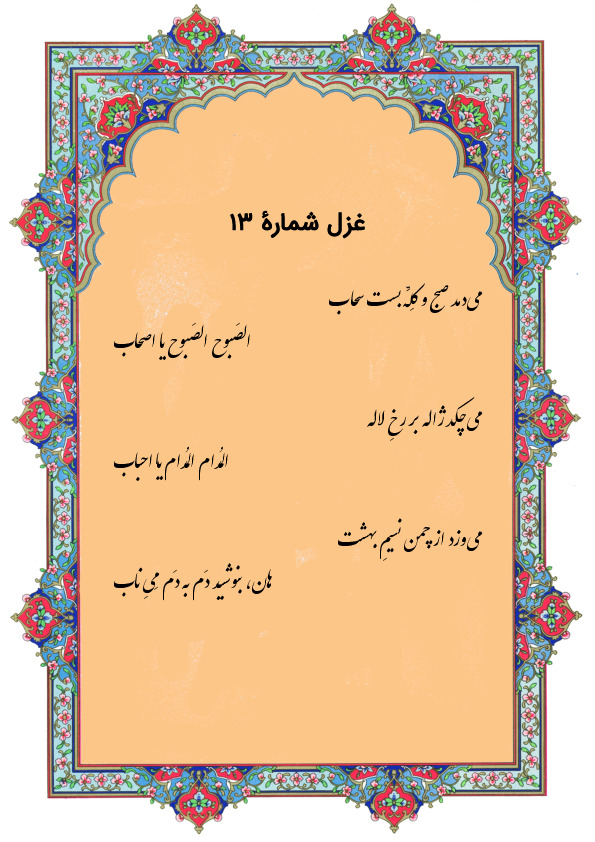 غزل شمارهٔ ۱۳
می‌دمد صبح و کِلِّه بست سحاب
الصَبوح الصَبوح یا اصحاب
می‌چکد ژاله بر رخِ لاله
المُدام المُدام یا احباب
می‌وزد از چمن نسیمِ بهشت
هان، بنوشید دَم به دَم مِیِ ناب